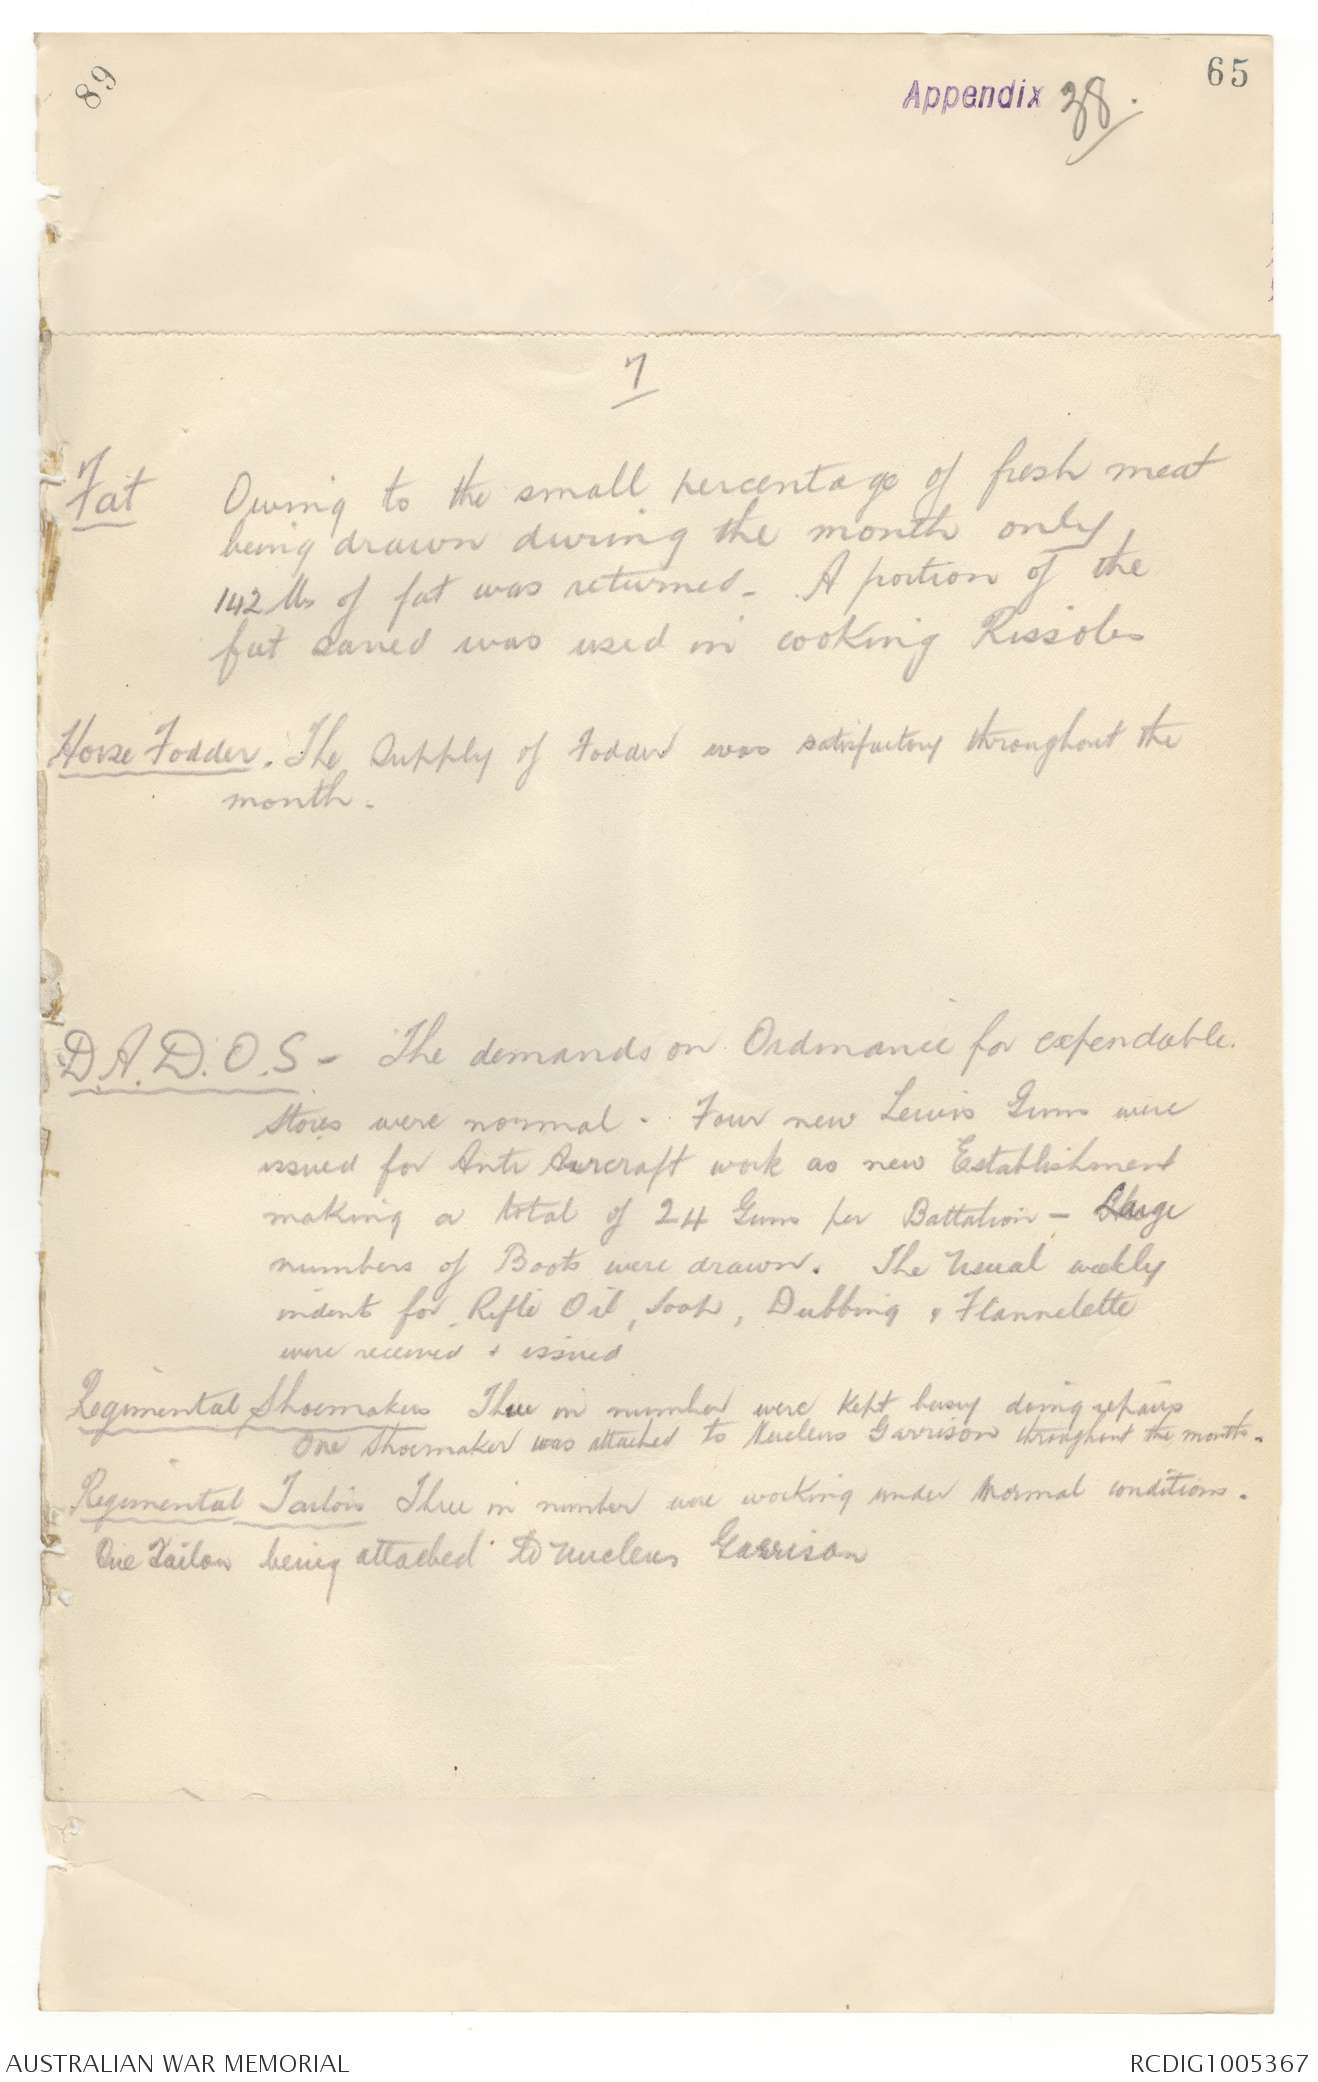 89
65
Appendix 38.
7
Fat Owing to the small percentage of fresh meat
being drawn during the month only
142 lbs of fat was returned - A portion of the
fat saved was used in cooking Rissoles
Horse Fodder. The supply of Fodder was satisfactory throughout the
month -
D.A.D.O.S - The demands on Ordnance for expendable
stores were normal - Four new Lewis Guns were
issued for Anti Aircraft work as new Establishment
making a total of 24 Guns per Battalion - Large
numbers of Boots were drawn. The Usual weekly
indent for Rifle Oil, Soap, Dubbing & Flannelette
were received & issued
Regimental Shoemakers Three in number were kept busy doing repairs
One Shoemaker was attached to Nucleus Garrison throughout the month -
Regimental Tailors Three in number were working under Normal conditions.
One Tailor being attached to Nucleus Garrison
AUSTRALIAN WAR MEMORIAL
RCDIG1005367